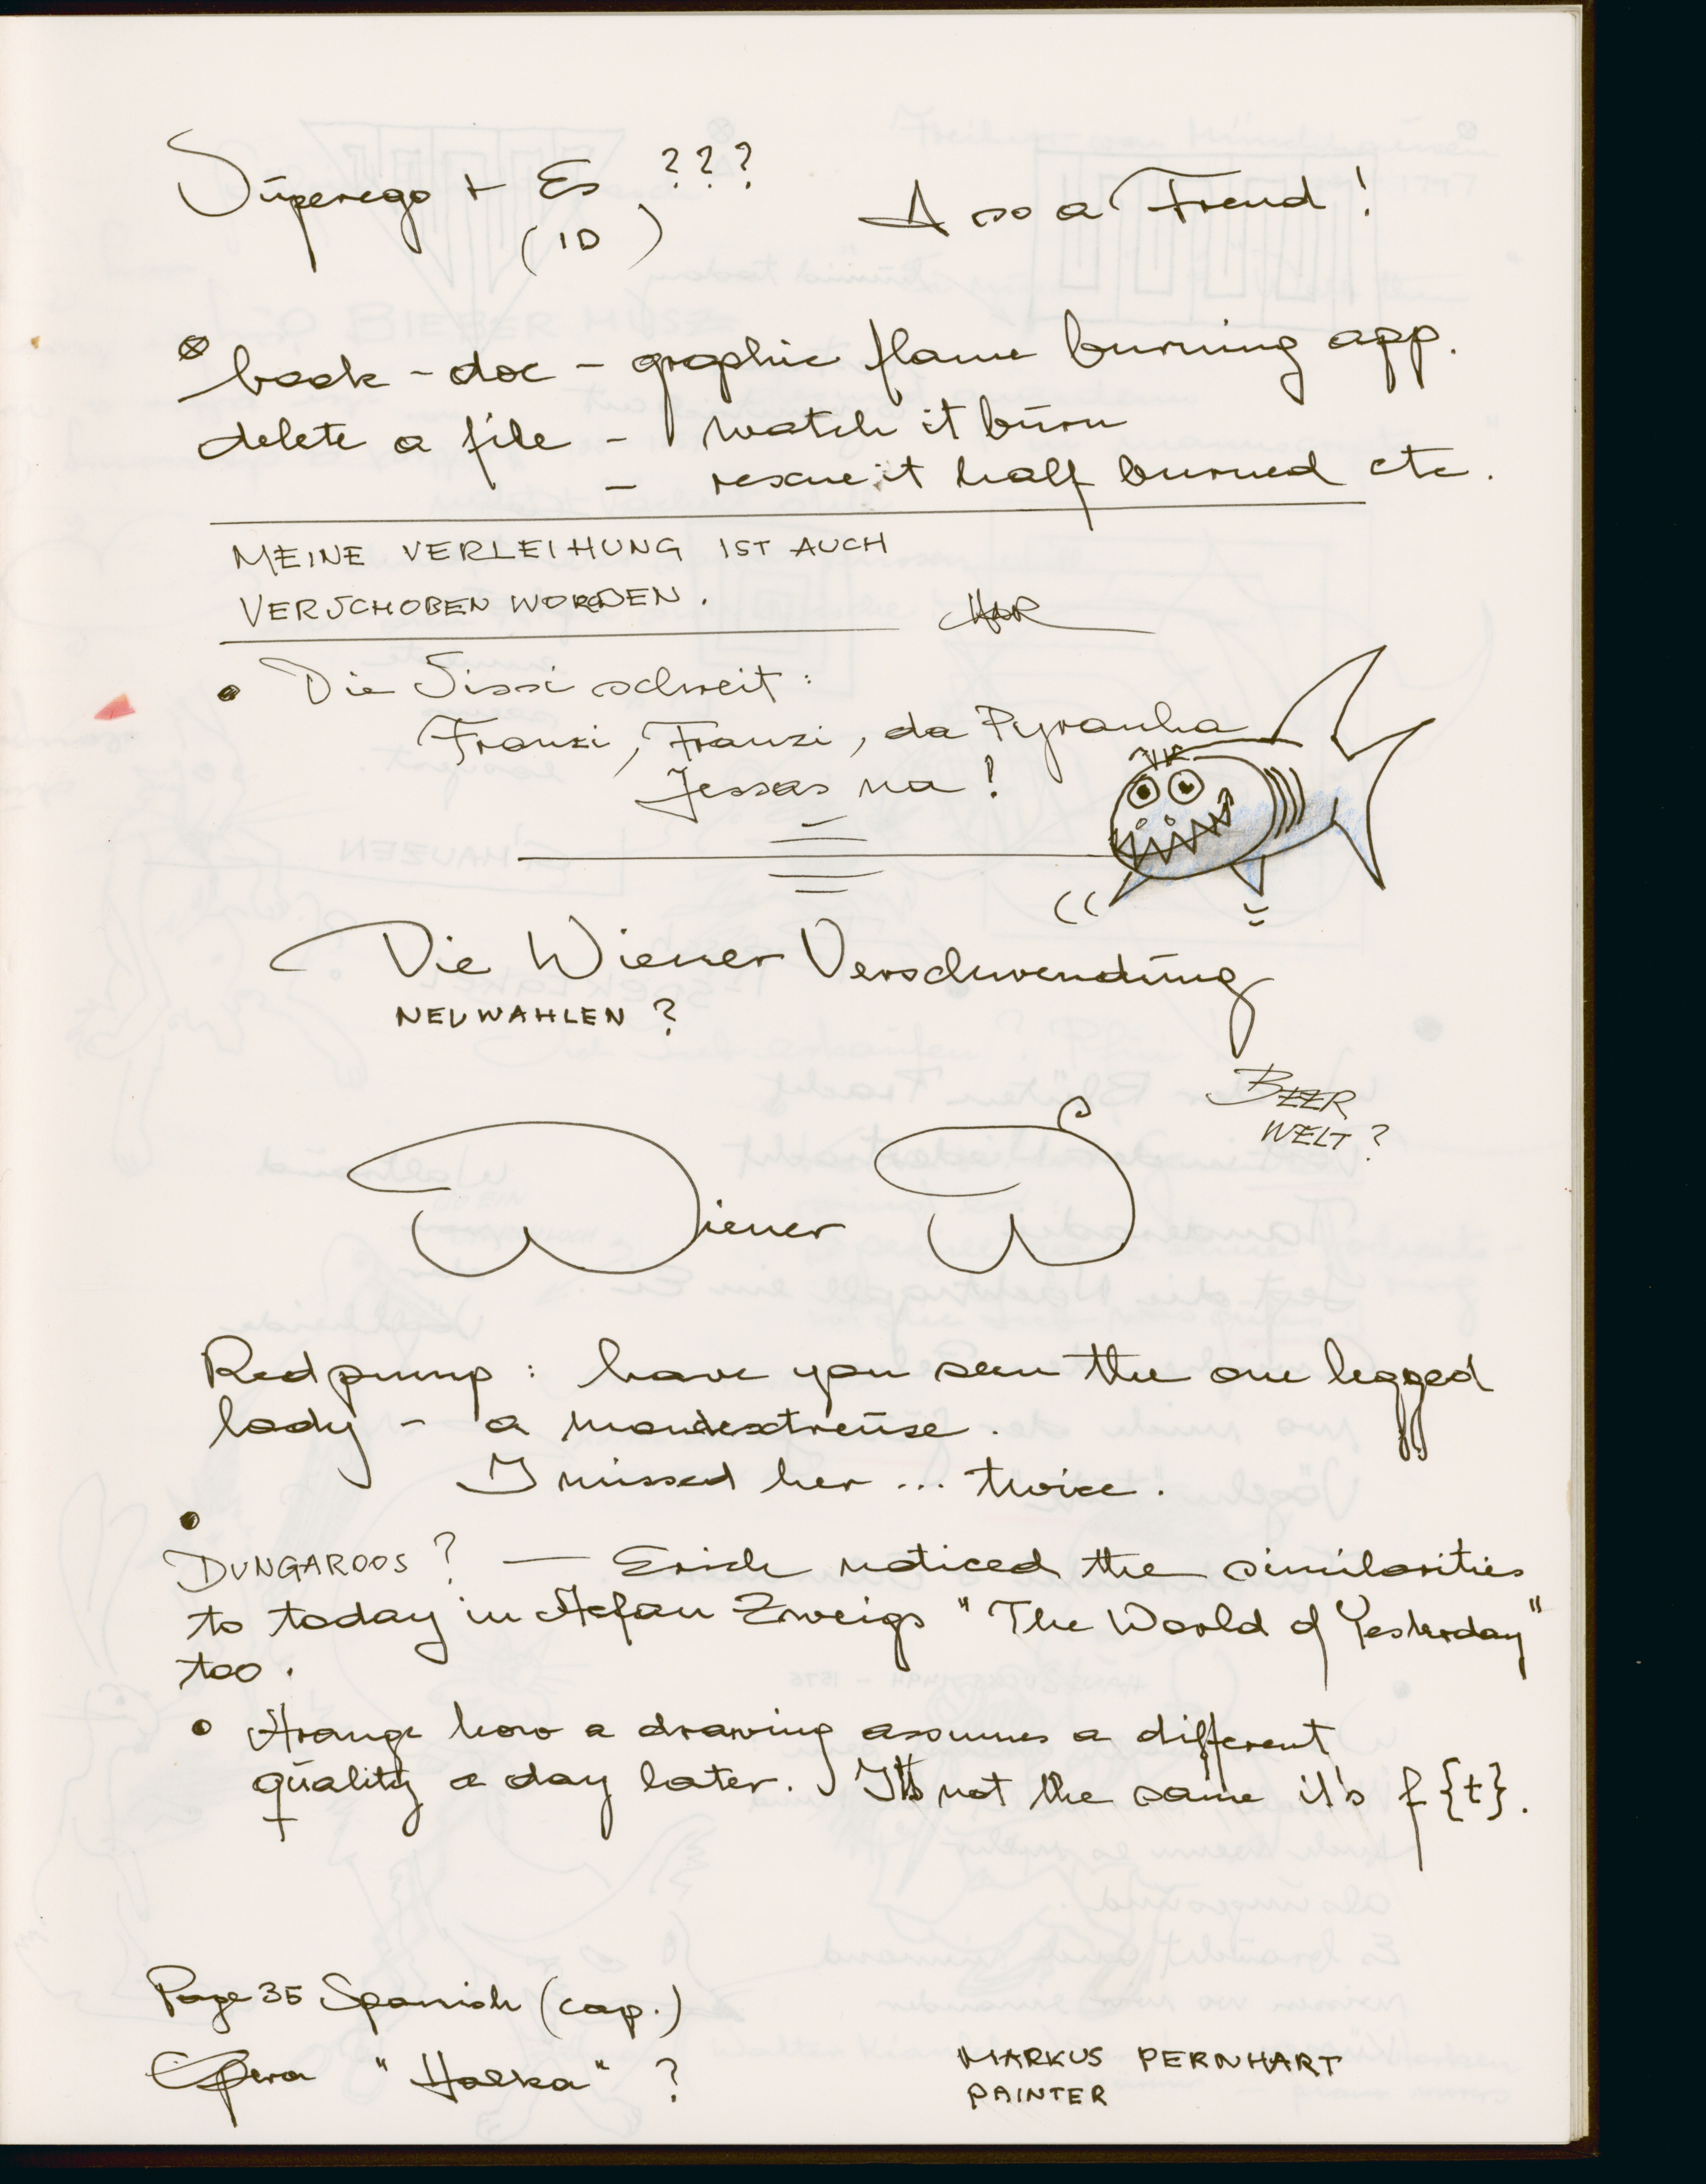 Superego + Es ???
(ID)
A so a Freud!
book - doc - graphic flame burning app.
delete a file - watch it burn
- rescue it half burned etc.
MEINE VERLEIHUNG IST AUCH
VERSCHOBEN WORDEN.
Die Sissi schreit:
Franzi, Franzi, da Pyranha
Jessas na!
Die Wiener Verschwendung
NEUWAHLEN?
BEER
WELT?
Wiener W
Redpump: have you seen the one legged
lady - a
I missed her ... twice.
DUNGAROOS? — Erich noticed the similarities
to today in Stefan Zweigs "The World of Yesterday"
too.
Strange how a drawing assumes a different
quality a day later. It's not the same it's f{t}.
Page 35 Spanish (cap.)
Opera "Halka"?
MARKUS PERNHART
PAINTER